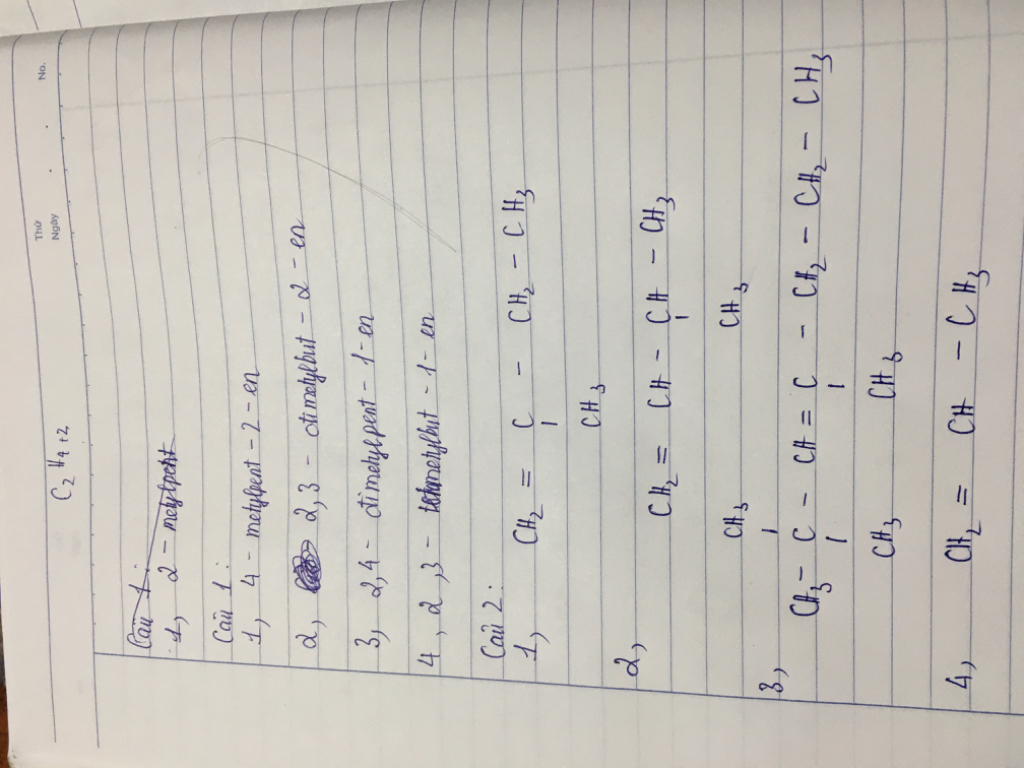 Thứ
Ngày
No.
C₂ H₄₊₂
Câu 1:
1, 2 - metylpent
Câu 1:
1, 4 - metylpent - 2 - en
2, 2,3 - đimetylbut - 2 - en
3, 2,4 - đimetylpent - 1 - en
4, 2,3 - metylbut - 1 - en
Câu 2:
1, CH₂ = C - CH₂ - CH₃
CH₃
2, CH₂ = CH - CH - CH₃
CH₃ CH₃
3, CH₃ - C - CH = C - CH₂ - CH₂ - CH₃
CH₃ CH₃
4, CH₂ = CH - CH₃